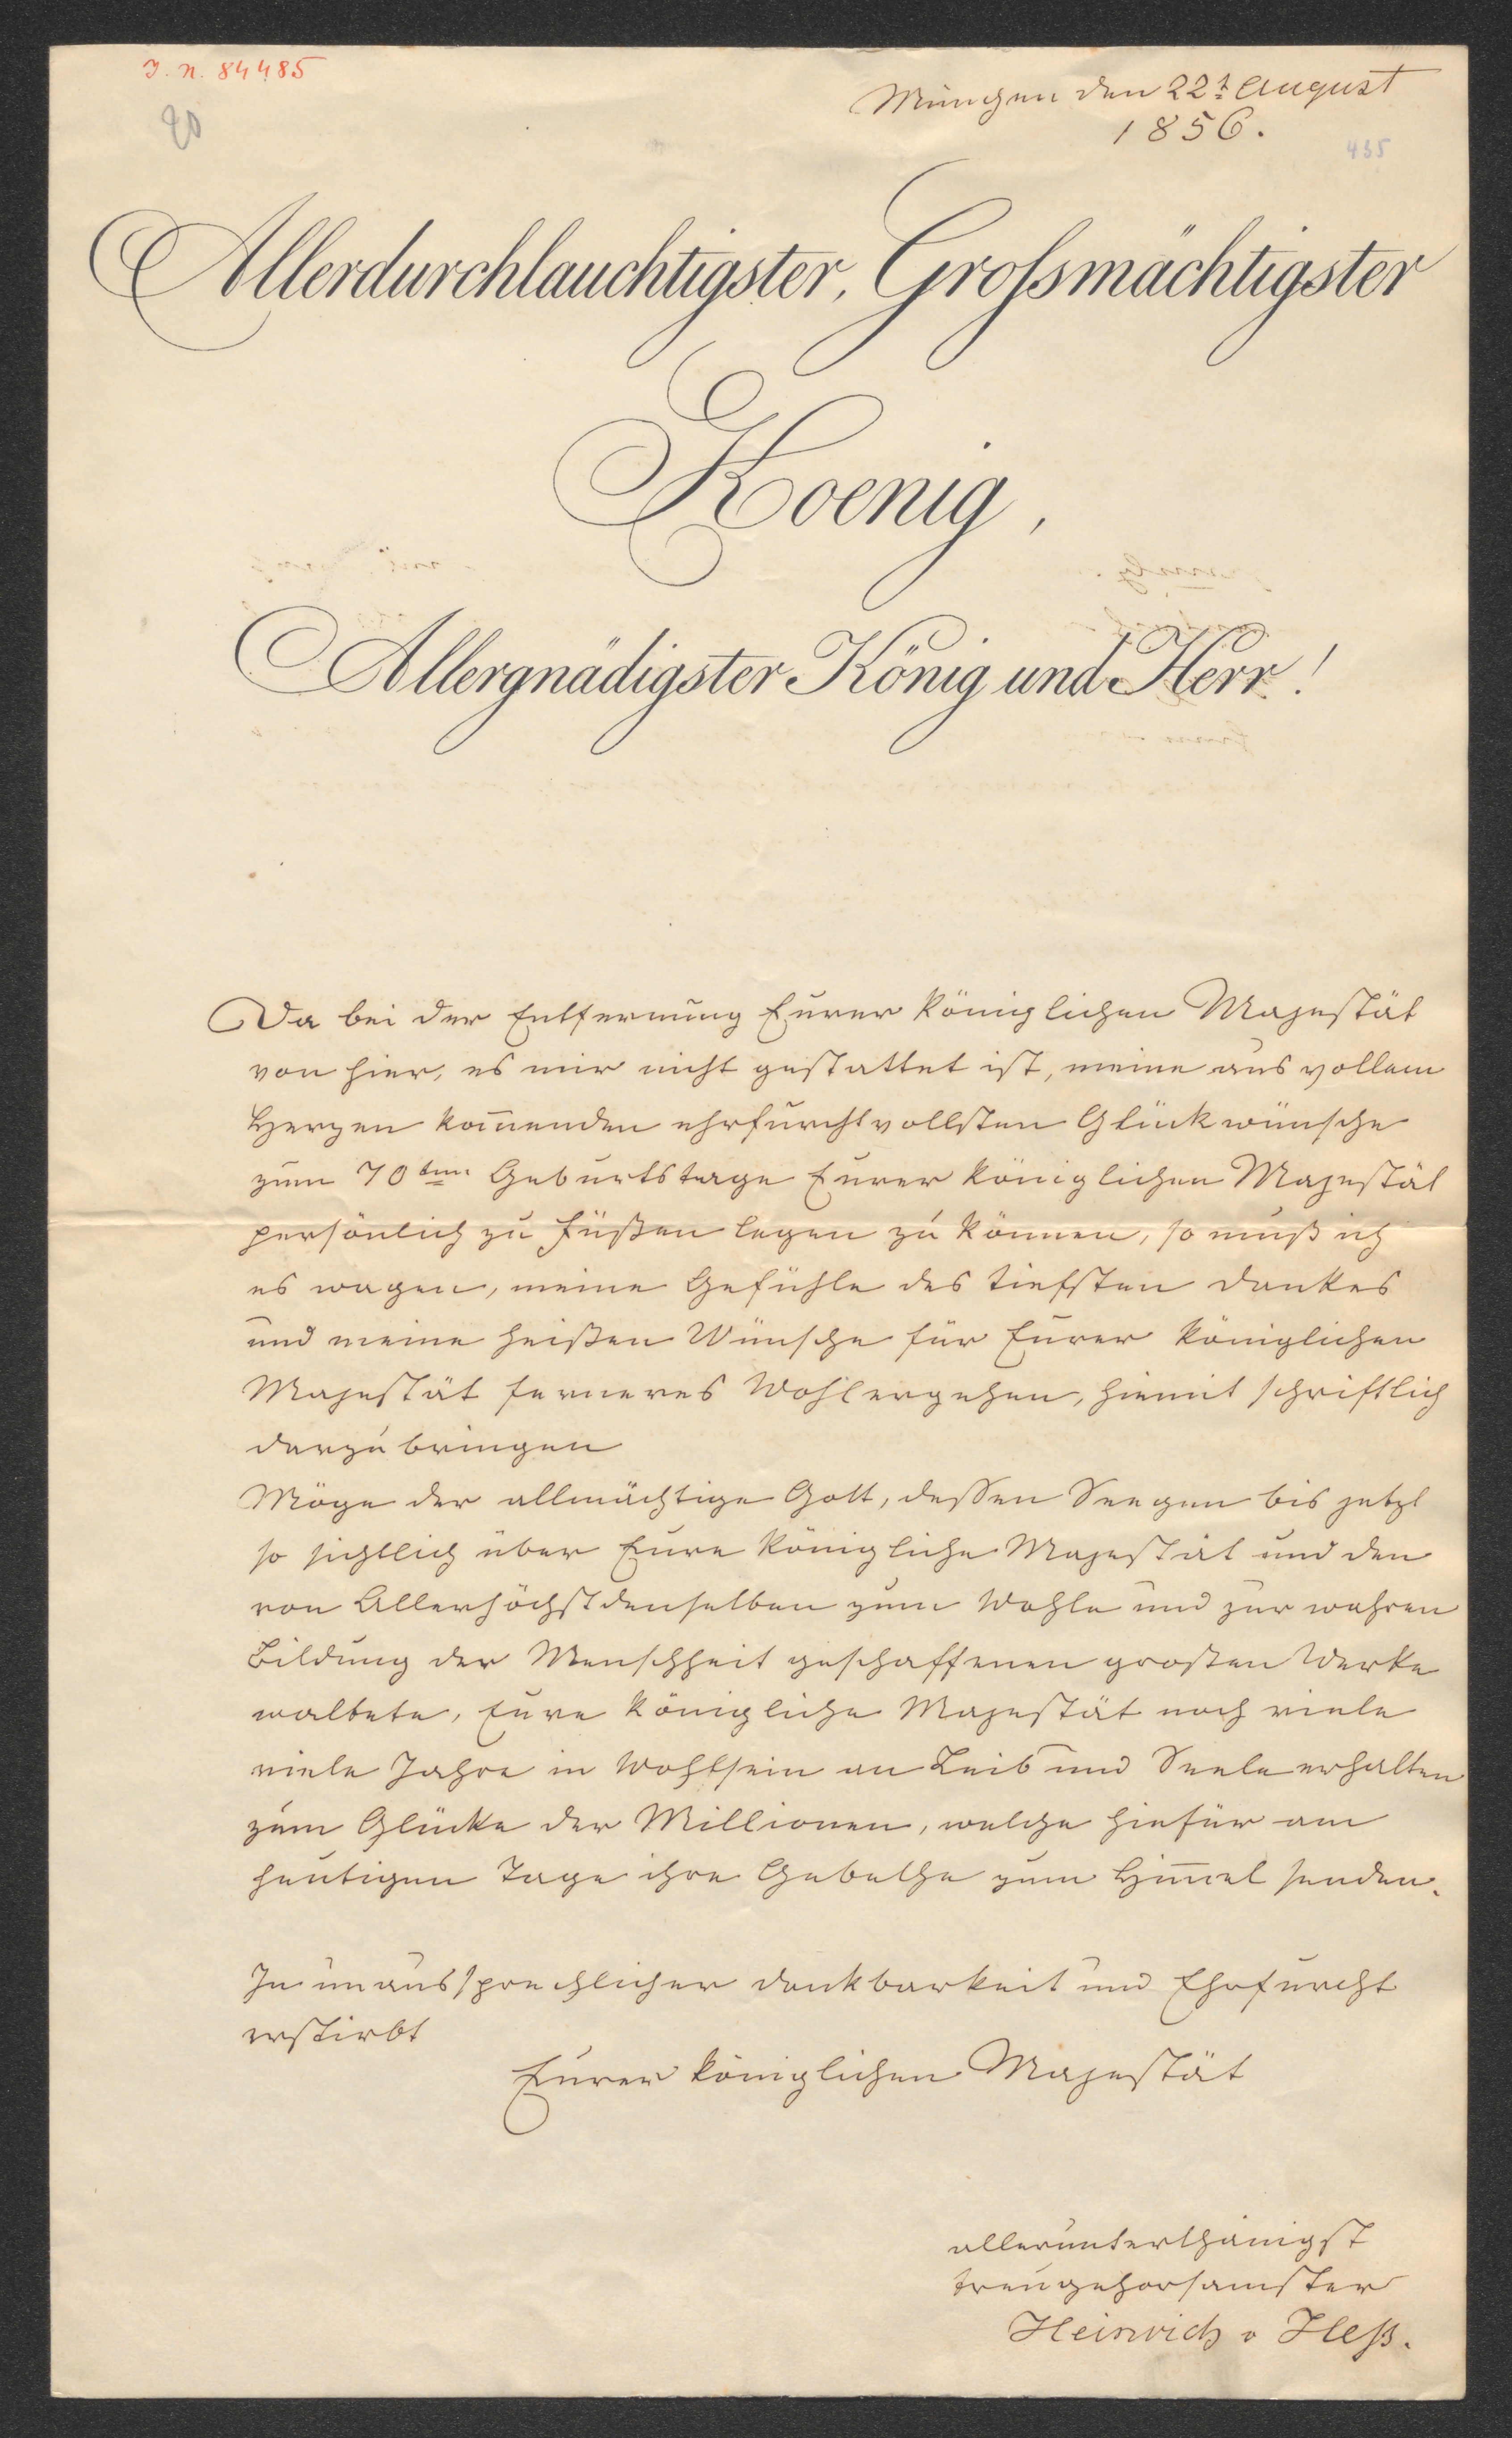 J. N. 84485
München den 22t August
1856.
435
Allerdurchlauchtigster, Großmächtigster
Koenig,
Allergnädigster König und Herr!
Da bei der Entfernung Eurer königlichen Majestät
von hier, es mir nicht gestattet ist, meine aus vollem
Herzen kom̄enden ehrfurchtvollsten Glückwünsche
zum 70ten Geburtstage Eurer königlichen Majestät
persönlich zu Füßen legen zu können, so muß ich
es wagen, meine Gefühle des tiefsten Dankes
und meine heißen Wünsche für Eurer königlichen
Majestät ferneres Wohlergehen, hiemit schriftlich
darzubringen
Möge der allmächtige Gott, dessen Seegen bis jetzt
so sichtlich über Eure königliche Majestät und den
von Allerhöchstdenselben zum Wohle und zur wahren
Bildung der Menschheit geschaffenen großen Werke
waltete, Eure königliche Majestät noch viele
viele Jahre in Wohlsein an Leib und Seele erhalten
zum Glücke der Millionen, welche hiefür am
heutigen Tage ihre Gebethe zum Him̄el senden.
In unaussprechlicher Dankbarkeit und Ehrfurcht
erstirbt
Eurer königlichen Majestät
allerunterthänigst
treugehorsamster
Heinrich v Heß.